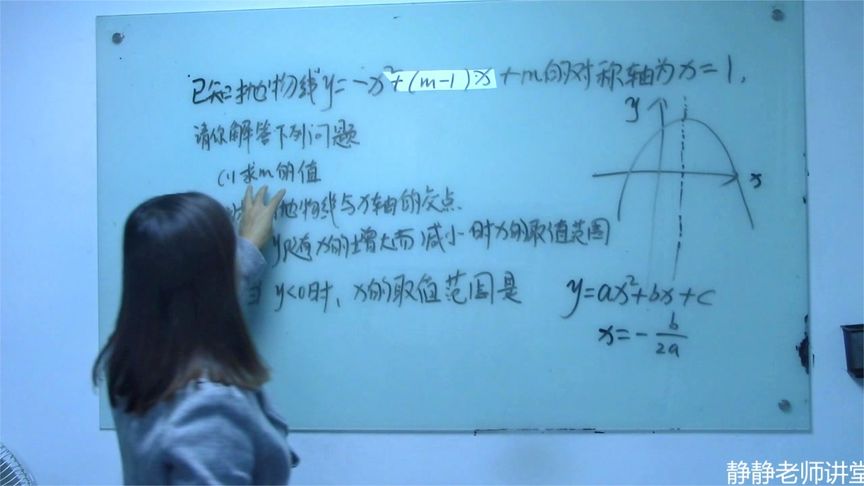 已知抛物线y=-x²+(m-1)x+m的对称轴为x=1,
请你解答下列问题
(1)求m的值
抛物线与x轴的交点.
y随x的增大而减小时x的取值范围
y<0时,x的取值范围是
y
x
y=ax²+bx+c
x=-b/2a
静静老师讲堂